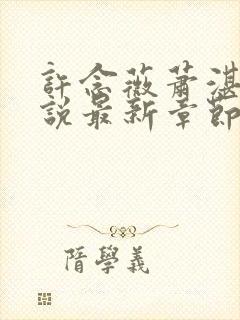 許念薇蕭湛
說最新章節
隋學義